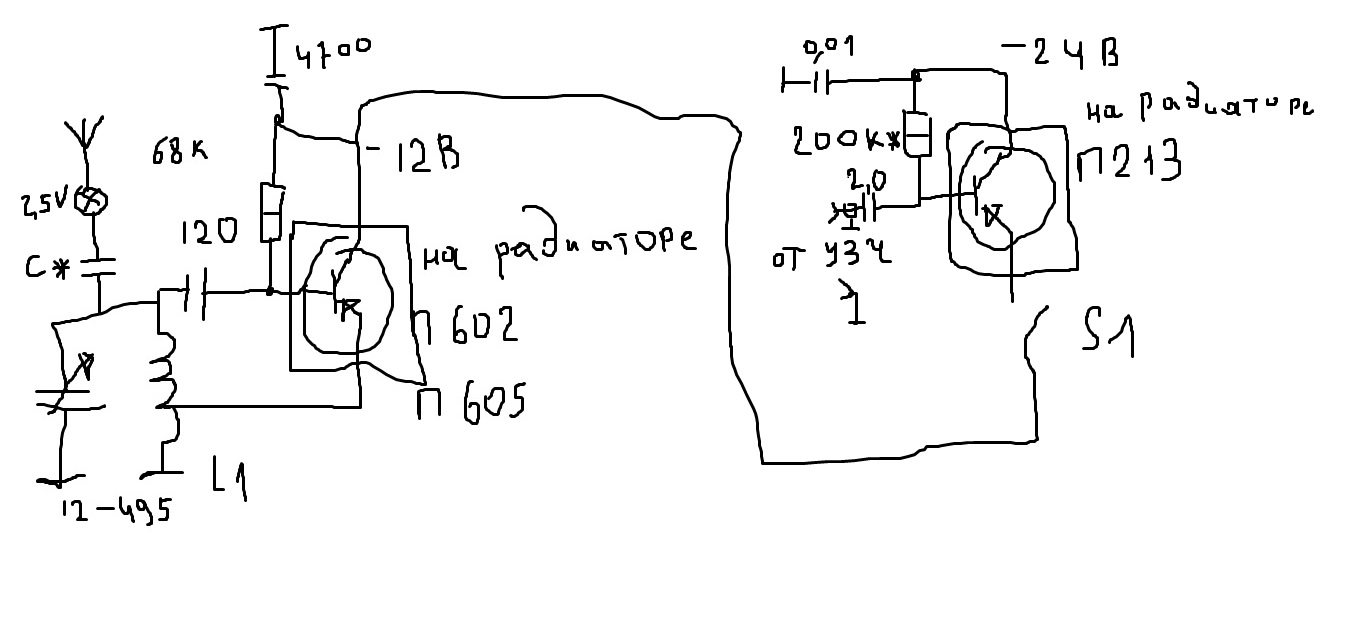 4700
0,01
-24 В
на радиаторе
68 к
-12В
200к*
П213
2,5V
2,0
120
на радиаторе
C*
от УЗЧ
1
П 602
S1
П 605
L1
12-495